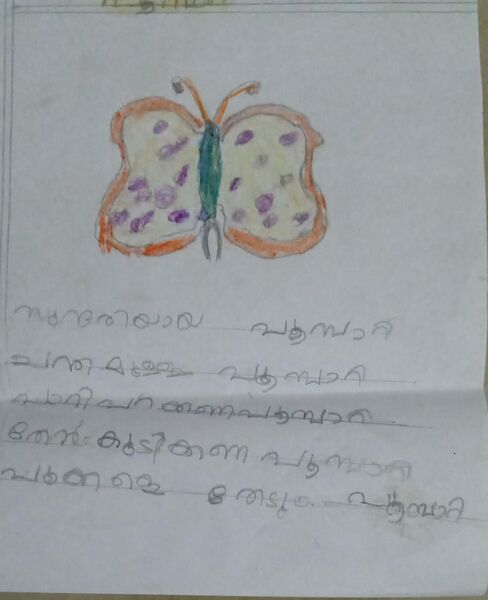 സുന്ദരിയായ പൂമ്പാറ്റ
ചന്തമുള്ള പൂമ്പാറ്റ
പാറിപറക്കണ പൂമ്പാറ്റ
തേൻ കുടിക്കണ പൂമ്പാറ്റ
പൂക്കളെ തേടും പൂമ്പാറ്റ